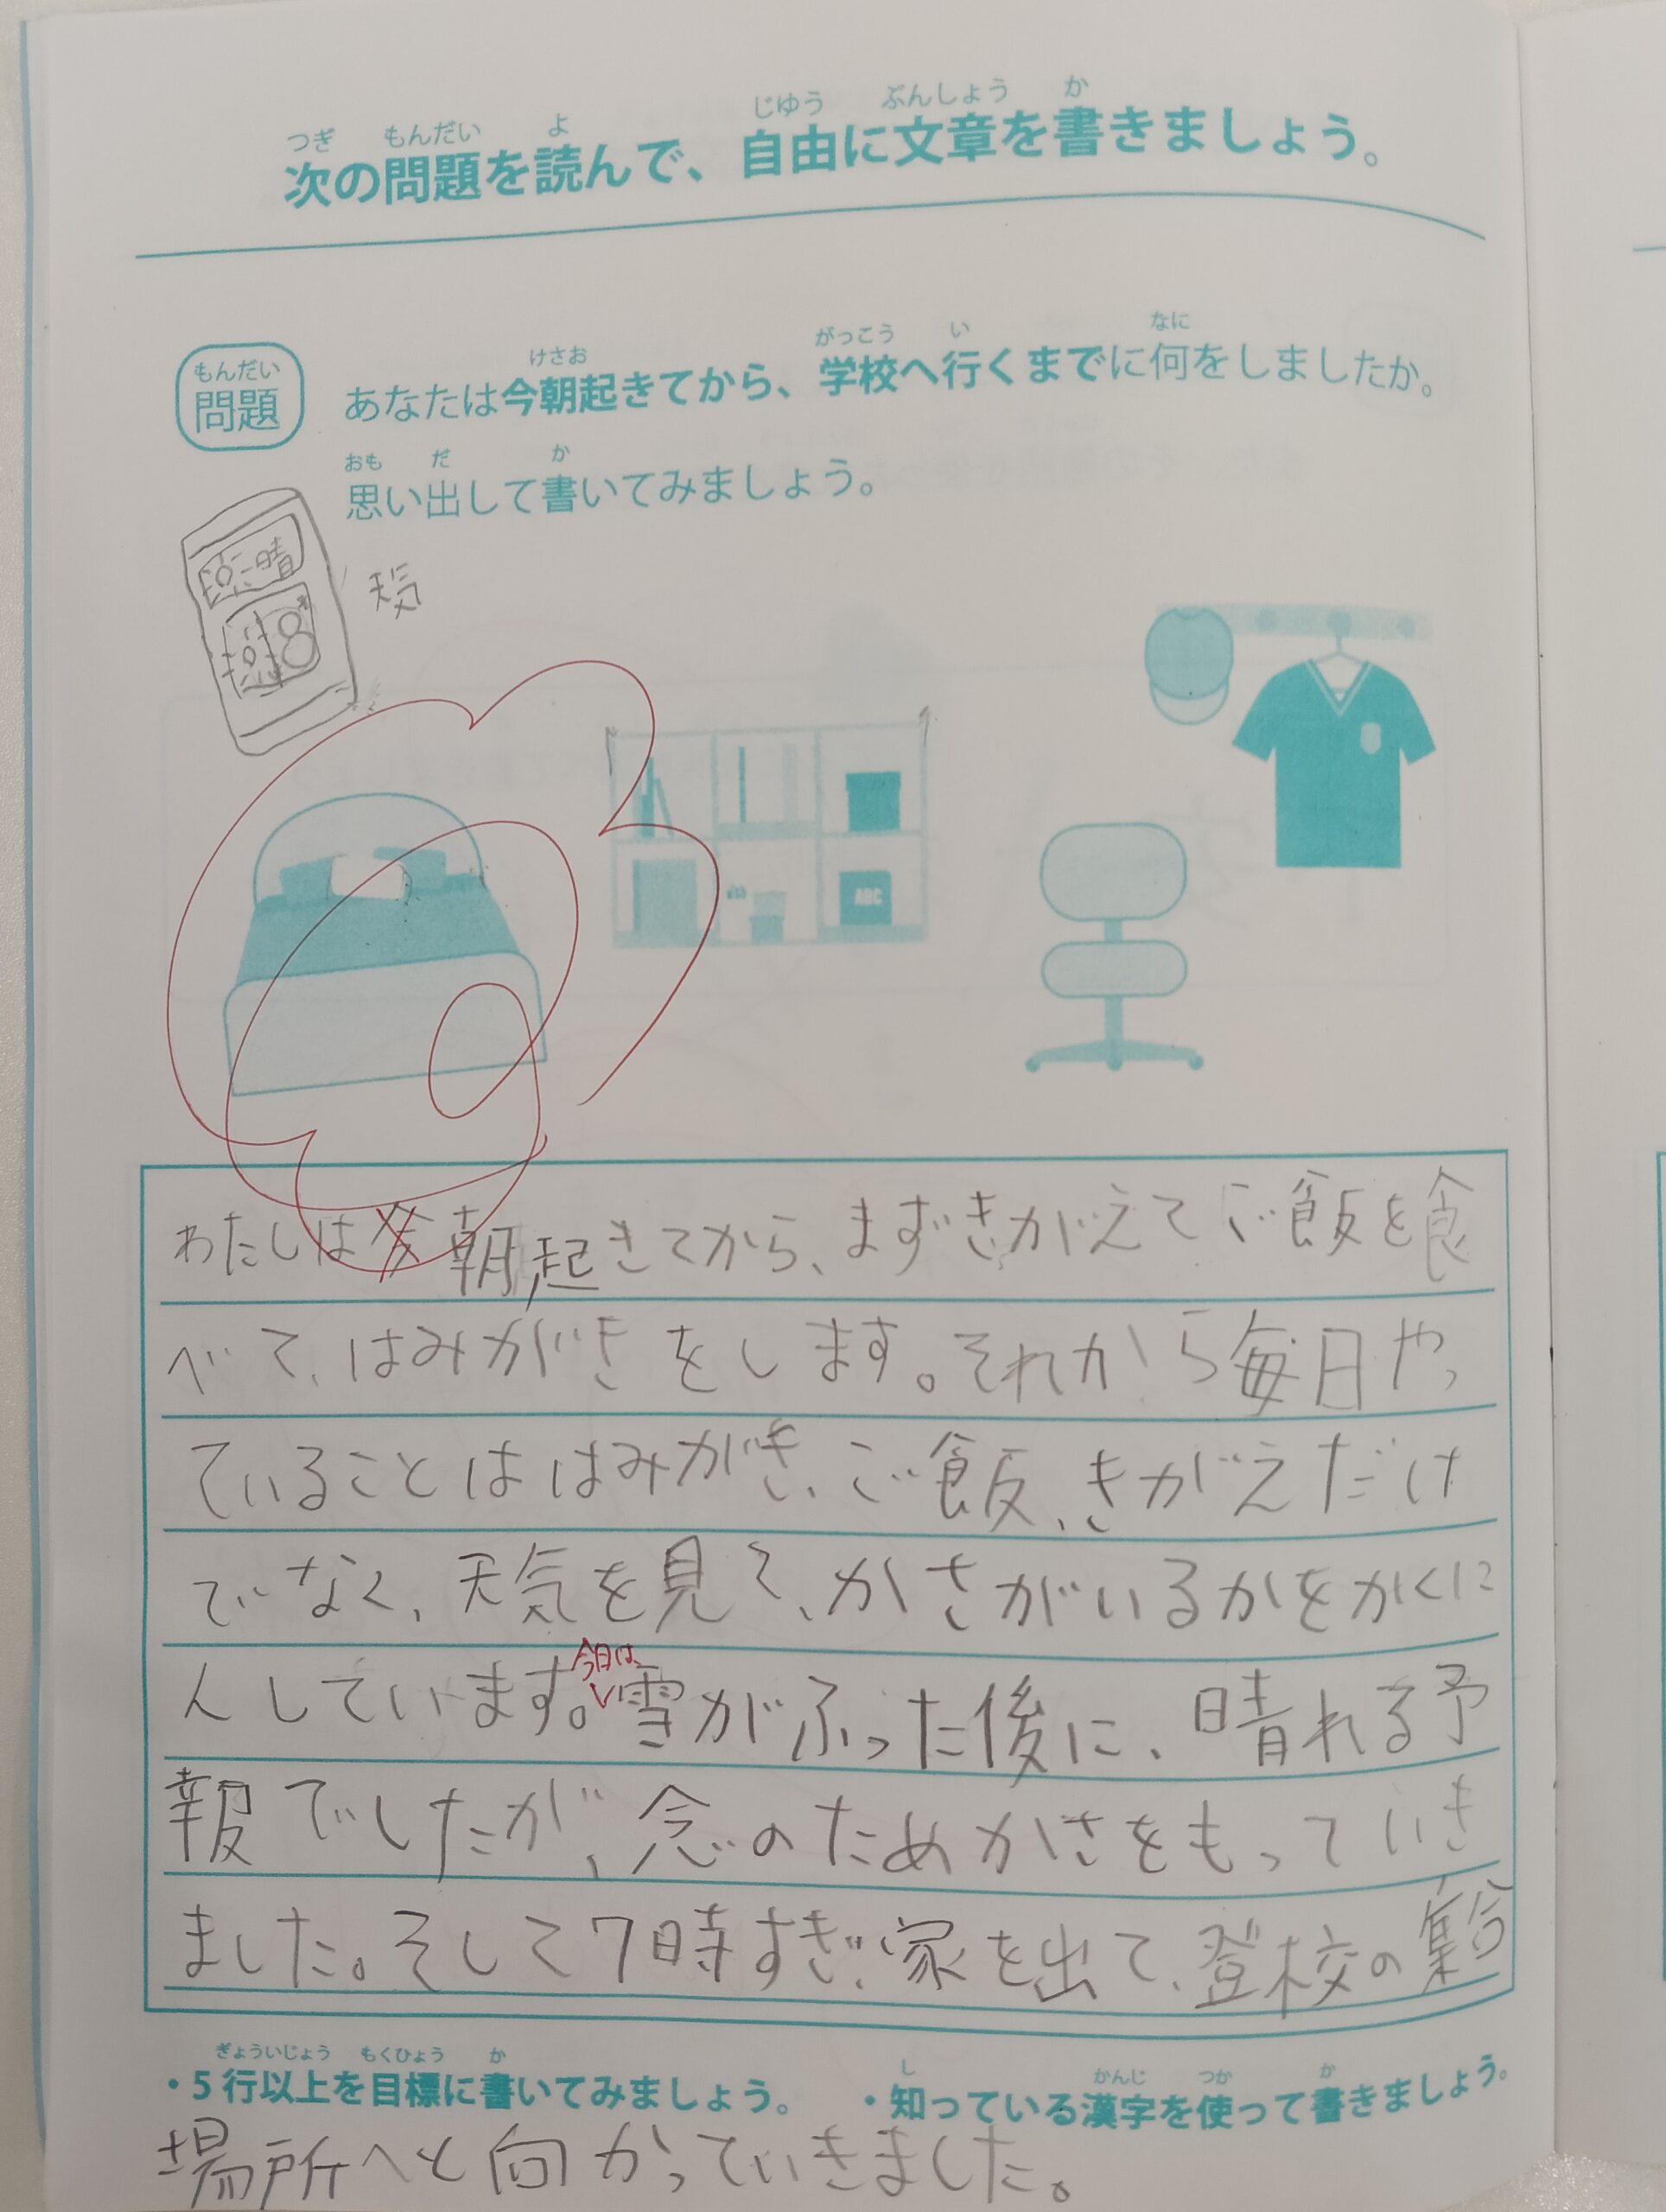 つぎ もんだい よ じゆう ぶんしょう か
次の問題を読んで、自由に文章を書きましょう。
もんだい
問題
けさお がっこう い なに
あなたは今朝起きてから、学校へ行くまでに何をしましたか。
おも だ か
思い出して書いてみましょう。
晴
8
天気
ABC
わたしは朝起きてから、まずきがえてご飯を食
べて、はみがきをします。それから毎日やっ
ていることははみがき、ご飯、きがえだけ
でなく、天気を見て、かさがいるかをかくに
今日は
んしています。雪がふった後に、晴れる予
報でしたが、念のためかさをもっていき
ました。そして7時すぎ、家を出て、登校の集合
ぎょういじょう もくひょう か し かんじ つか か
・5行以上を目標に書いてみましょう。 ・知っている漢字を使って書きましょう。
場所へと向かっていきました。